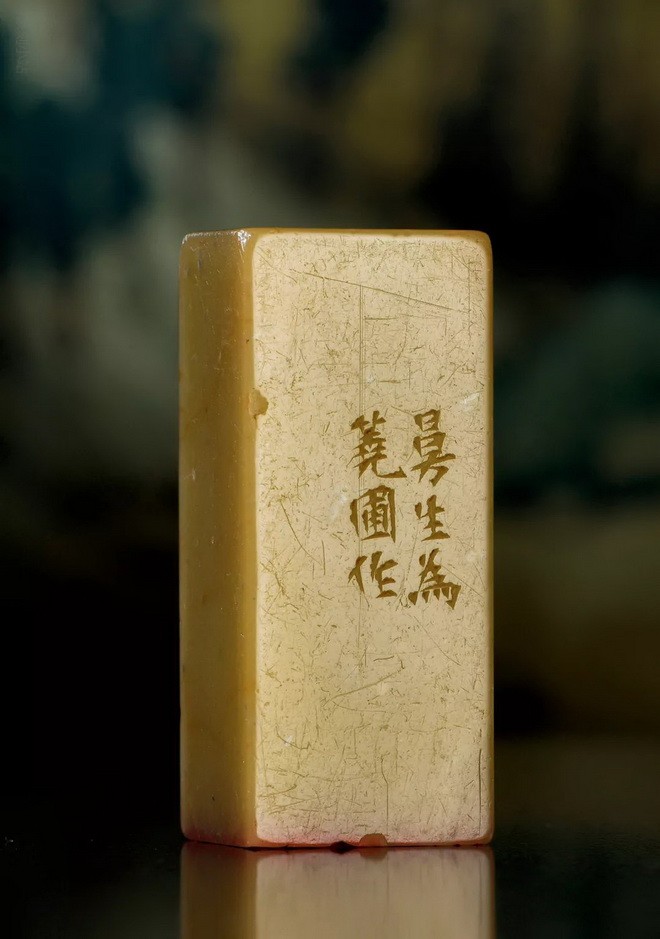 曼生為
蕘圃作